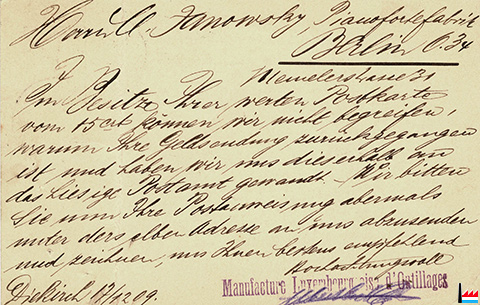 Herrn M. Janowsky, Pianofortefabrik
Berlin O. 34
Memelerstrasse 31
Im Besitze Ihrer werten Postkarte
vom 15 crt können wir nicht begreifen,
warum Ihre Geldsendung zurückgegangen
ist und haben wir uns dieserhalb an
das hiesige Postamt gewandt. Wir bitten
Sie nun Ihre Postanweisung abermals
unter derselben Adresse an uns abzusenden
und zeichnen, uns Ihnen bestens empfehlend
Hochachtungsvoll
Manufacture Luxembourgeoise d'Outillages
Diekirch 09.